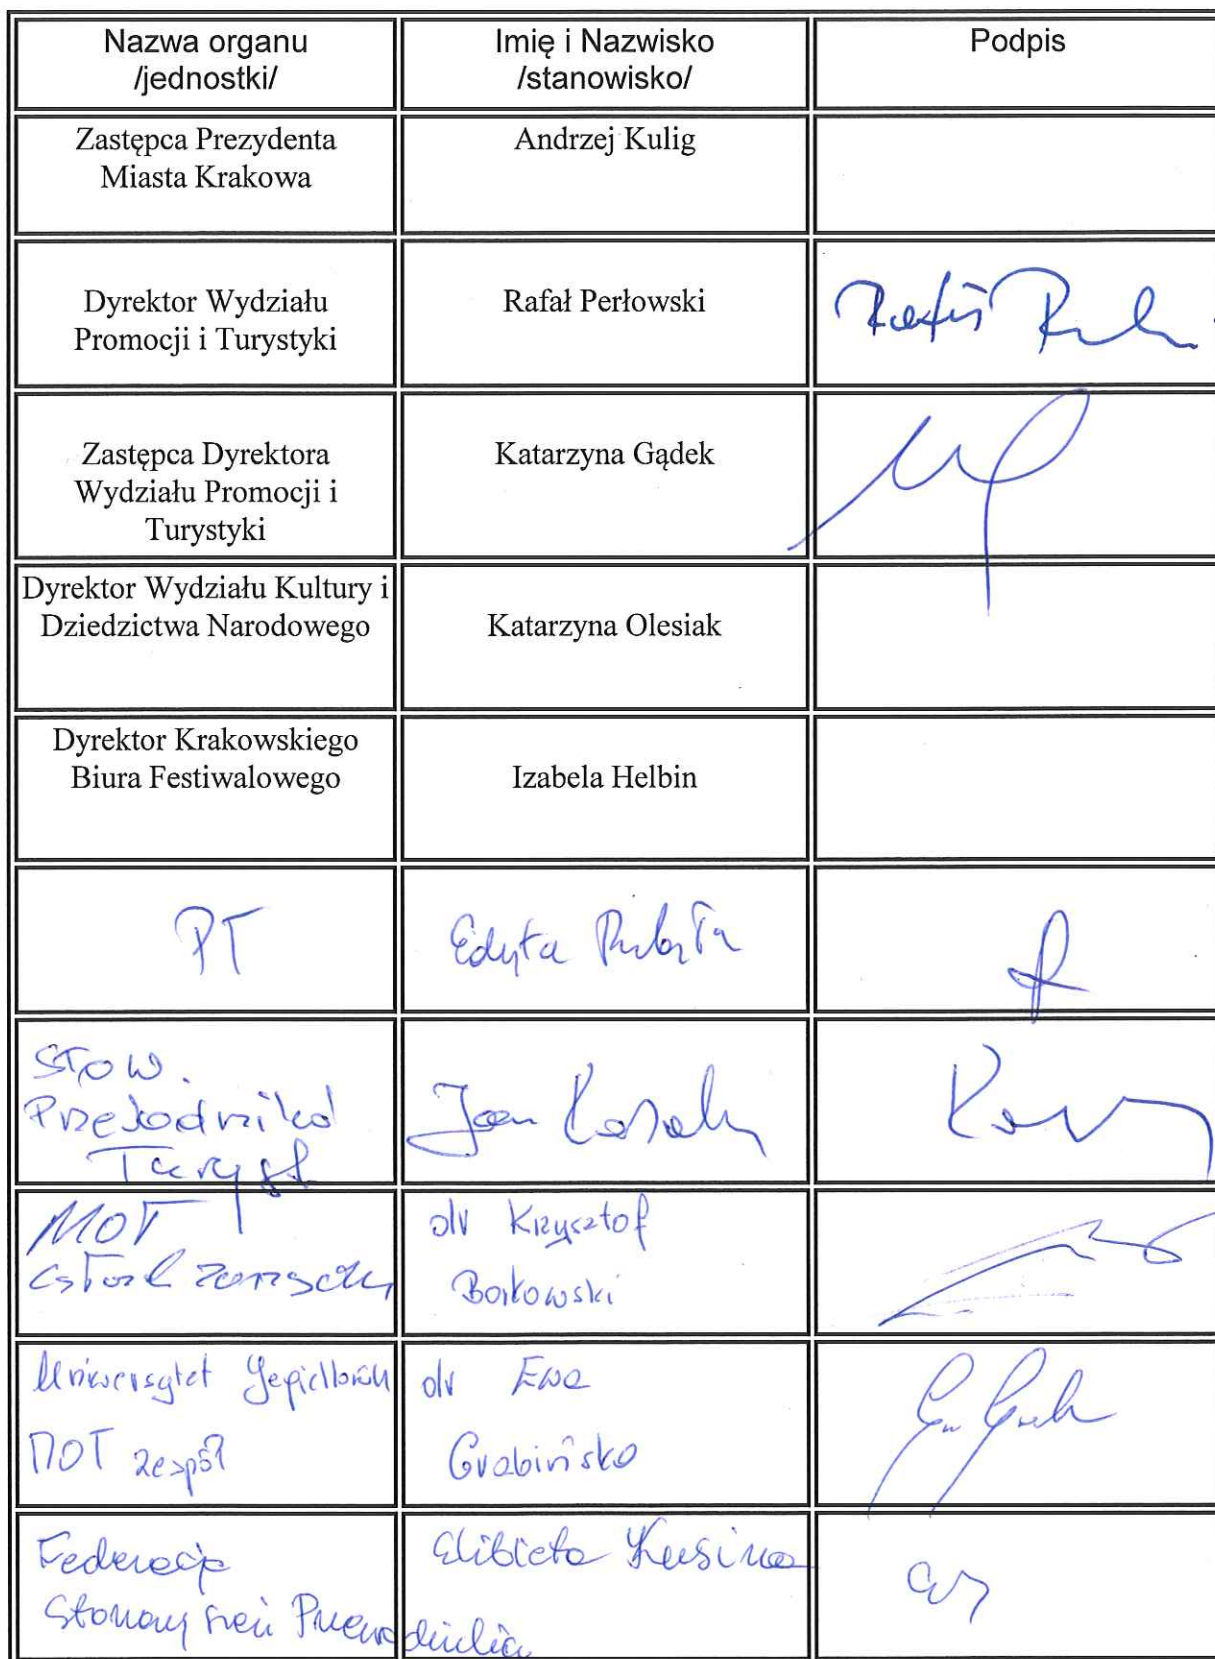 Nazwa organu
/jednostki/
Imię i Nazwisko
/stanowisko/
Podpis
Zastępca Prezydenta
Miasta Krakowa
Andrzej Kulig
Dyrektor Wydziału
Promocji i Turystyki
Rafał Perłowski
Zastępca Dyrektora
Wydziału Promocji i
Turystyki
Katarzyna Gądek
Dyrektor Wydziału Kultury i
Dziedzictwa Narodowego
Katarzyna Olesiak
Dyrektor Krakowskiego
Biura Festiwalowego
Izabela Helbin
PT
Edyta
Stow.
Jan
MOT
dr Krzysztof
Borkowski
Uniwersytet
MOT zespół
dr Ewa
Grabińska
Federacja
Elżbieta